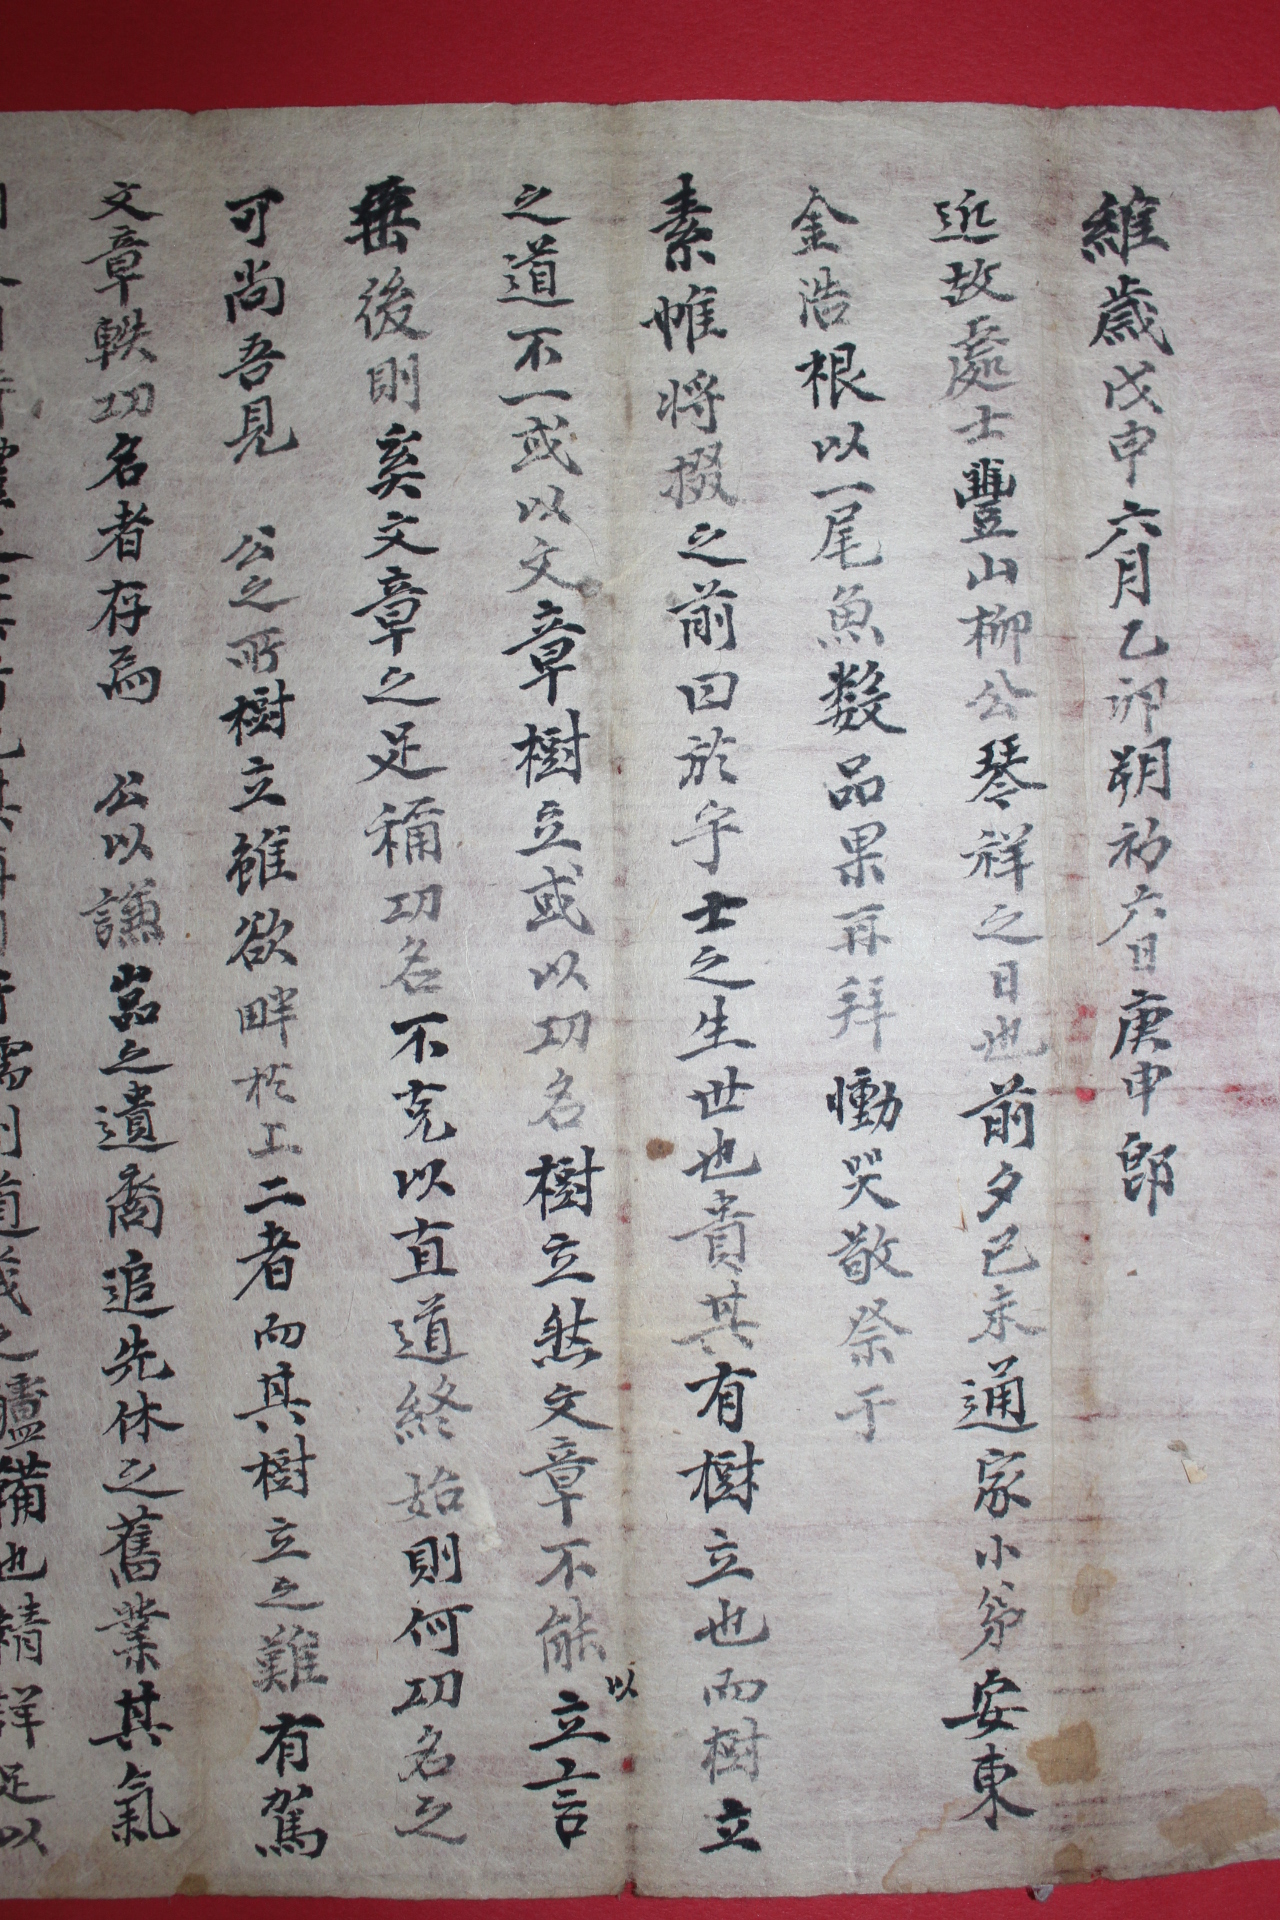 維歲戊申六月乙卯朔初六日庚申郎
近故處士豊山柳公琴祥之日也前夕己未通家小弟安東
金浩根以一尾魚数品果再拜慟哭敬祭于
素帷將掇之前曰於乎士之生世也貴其有樹立也而樹立
之道不一或以文章樹立或以功名樹立然文章不能以立言
垂後則奚文章之足稱功名不克以直道終始則何功名之
可尚吾見 公之所樹立雖欲畔於上二者而其樹立之難有駕
文章軼功名者存焉 公以謙嵓之遺裔追先休之舊業其氣